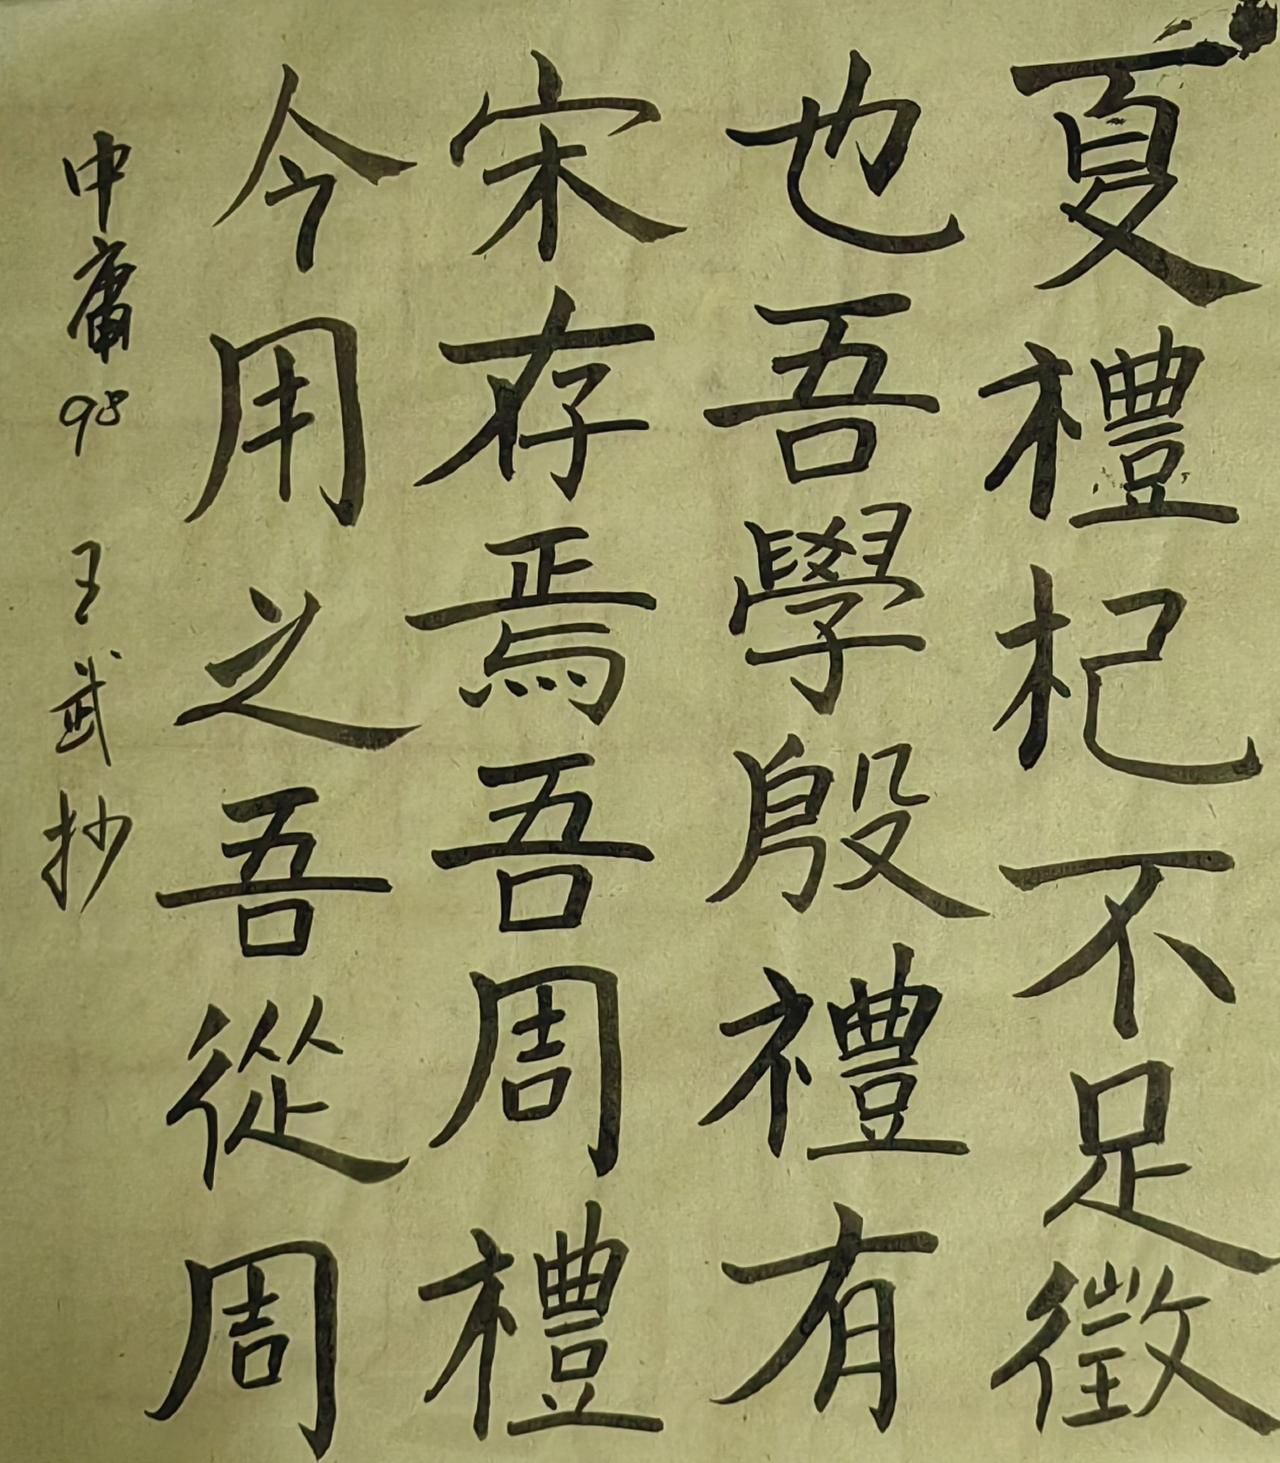 夏禮杞不足徵
也吾學殷禮有
宋存焉吾周禮
今用之吾從周
中庸98 王武抄